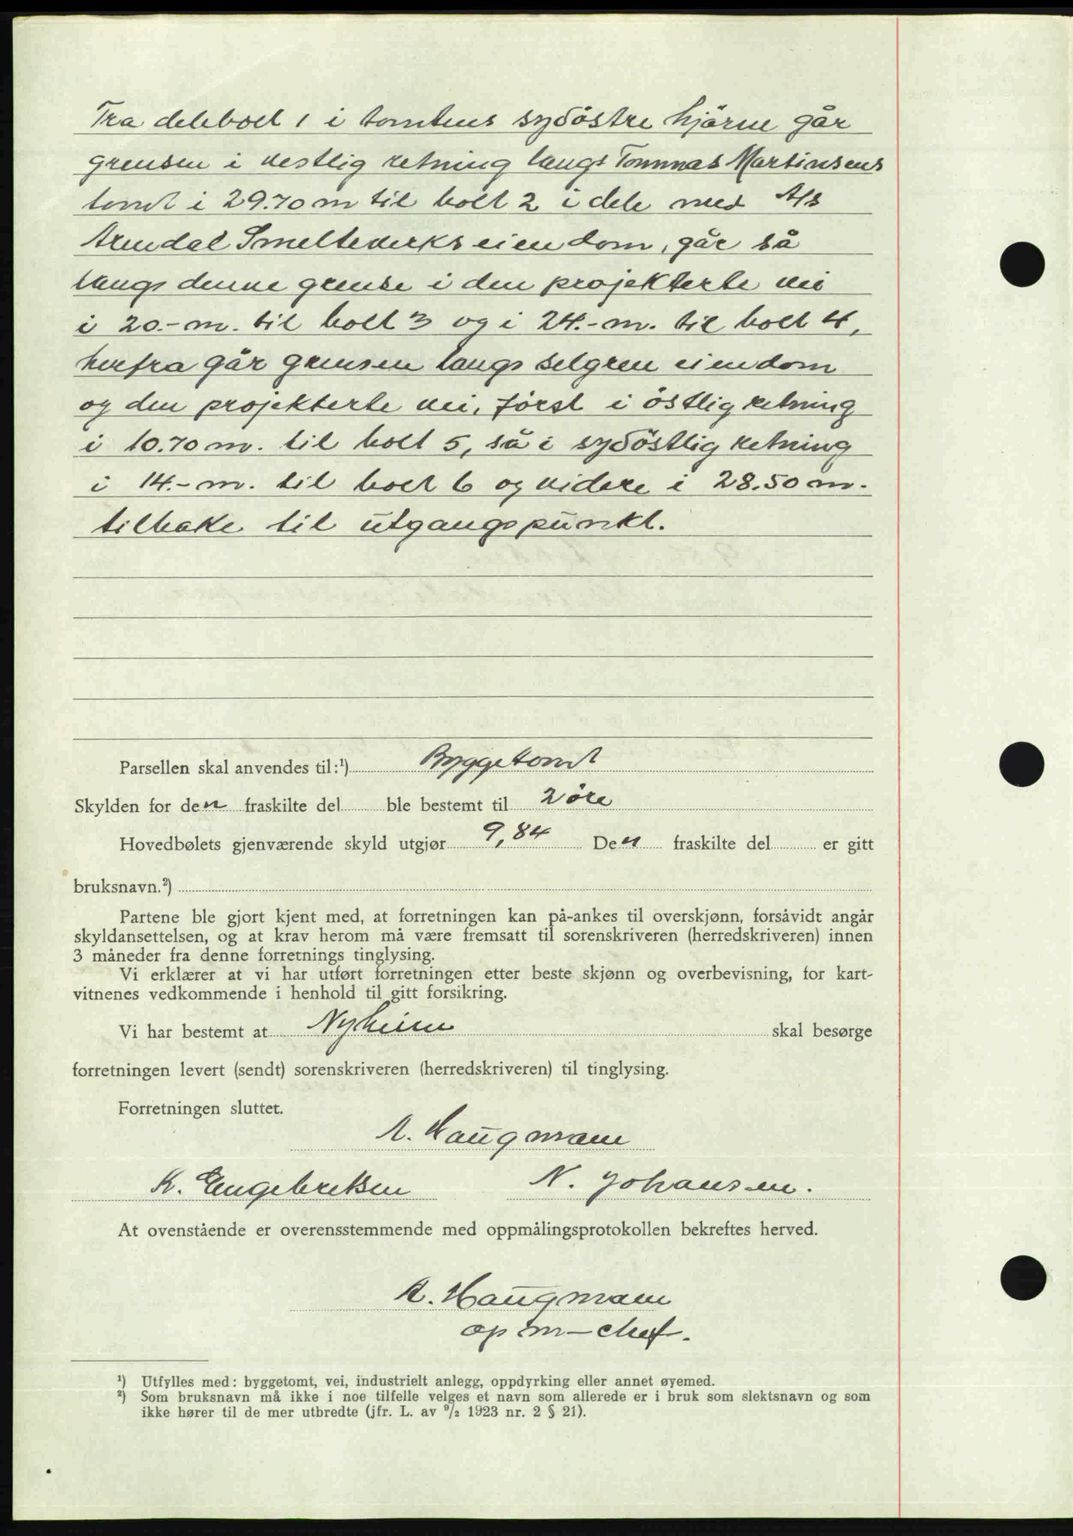 Fra delebolt 1 i tomtens sydöstre hjörne går
grensen i vestlig retning langs Tommas Martinsens
tomt i 29.70 m til bolt 2 i dele med A/s
Arendal Smelteverks eiendom, går så
langs denne grense i den projekterte vei
i 20.- m. til bolt 3 og i 24.- m. til bolt 4,
herfra går grensen langs selgren eiendom
og den projekterte vei, först i östlig retning
i 10.70 m. til bolt 5, så i sydöstlig retning
i 14.- m. til bolt 6 og videre i 28.50 m.
tilbake til utgangspunkt.
Parsellen skal anvendes til:¹) Byggetomt
Skylden for den fraskilte del ble bestemt til 2 øre
Hovedbølets gjenværende skyld utgjør 9,84 Den fraskilte del er gitt
bruksnavn.²)
Partene ble gjort kjent med, at forretningen kan på-ankes til overskjønn, forsåvidt angår
skyldansettelsen, og at krav herom må være fremsatt til sorenskriveren (herredskriveren) innen
3 måneder fra denne forretnings tinglysing.
Vi erklærer at vi har utført forretningen etter beste skjønn og overbevisning, for kart-
vitnenes vedkommende i henhold til gitt forsikring.
Vi har bestemt at Nyheim skal besørge
forretningen levert (sendt) sorenskriveren (herredskriveren) til tinglysing.
Forretningen sluttet.
A. Haugmam
K. Engebretsen N. Johansen.
At ovenstående er overensstemmende med oppmålingsprotokollen bekreftes herved.
A. Haugmam
op m-chef.
¹) Utfylles med: byggetomt, vei, industrielt anlegg, oppdyrking eller annet øyemed.
²) Som bruksnavn må ikke i noe tilfelle velges et navn som allerede er i bruk som slektsnavn og som
ikke hører til de mer utbredte (jfr. L. av ⁹/₂ 1923 nr. 2 § 21).